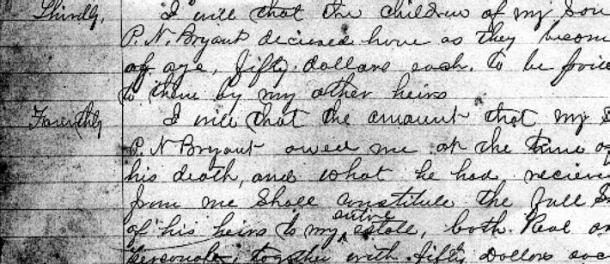 Thirdly, I will that the children of my Son
P. N. Bryant deceased have as they becom
of age, fifty dollars each. to be paid
to them by my other heirs
Fourthly I will that the amount that my S
P. N Bryant owed me at the time of
his death, and what he had recieve
from me shall constitute the full S
of his heirs to my entire estate, both Real an
Personale, together with fifty Dollars eac